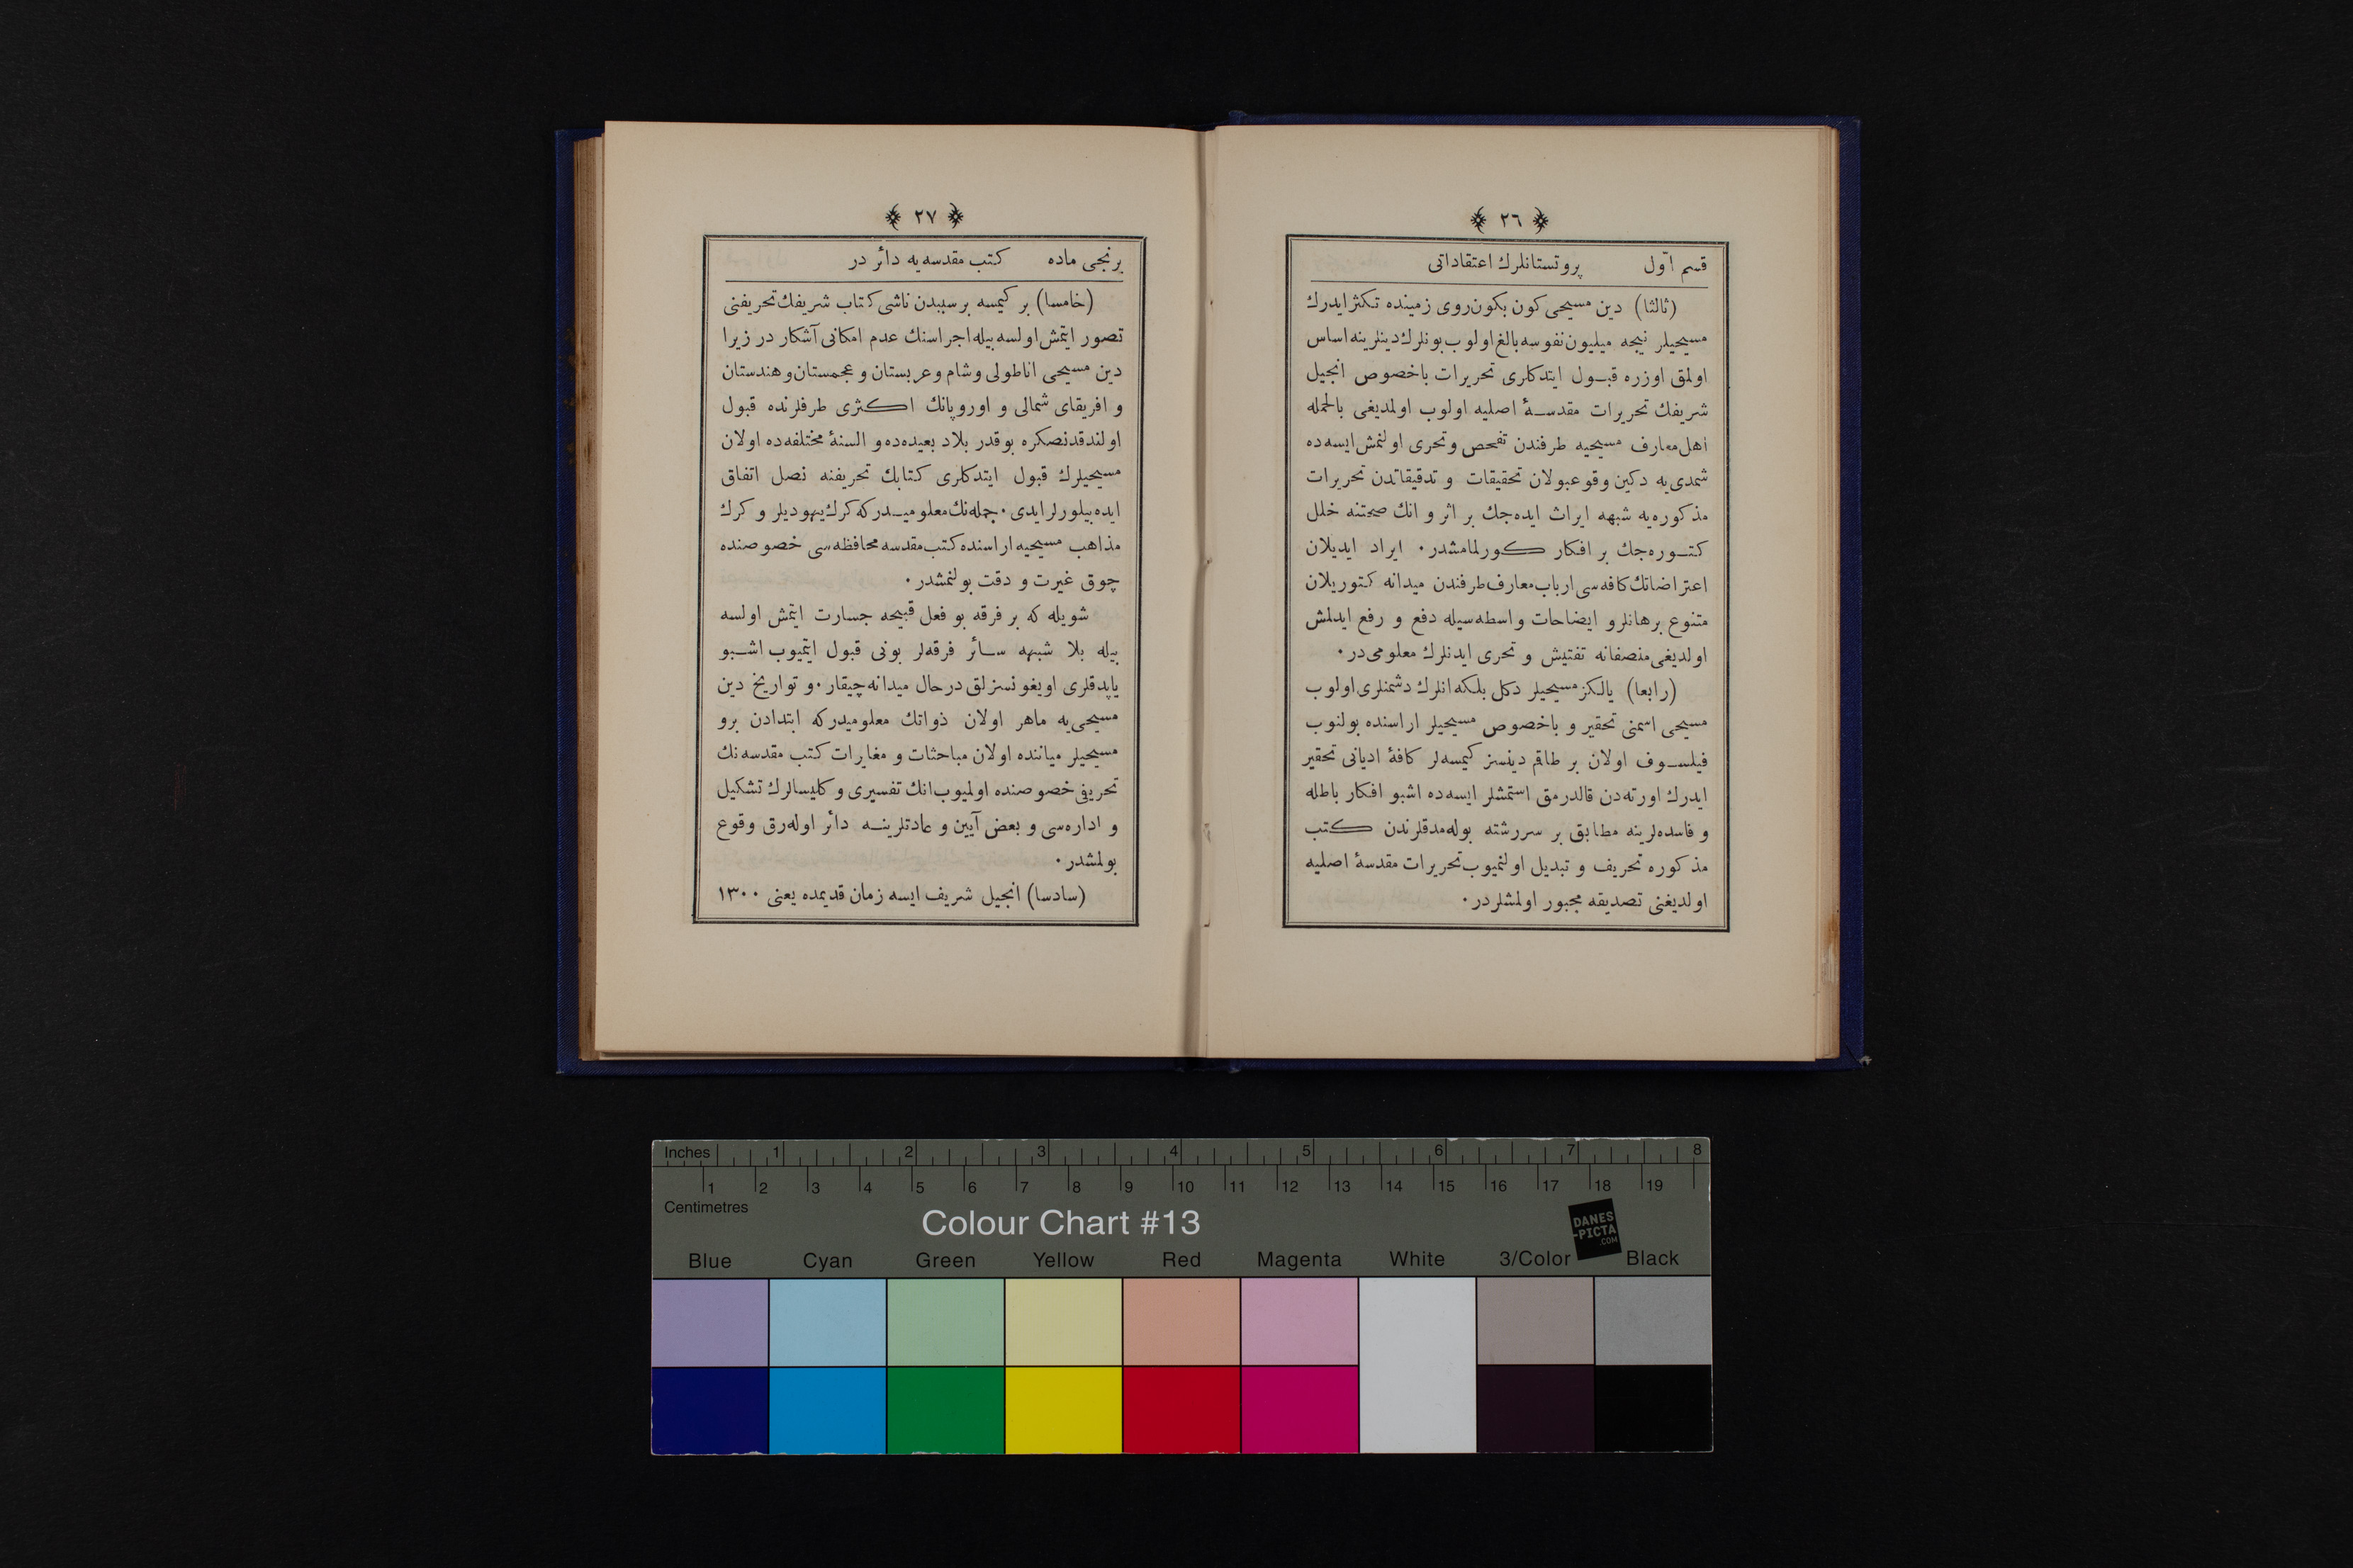 ٢٦
قسم اوّل پروتستانلرك اعتقاداتی
(ثالثا) دین مسیحی كون بكون روی زمینده تكثر ایدرك
مسیحیلر نیجه میلیون نفوسه بالغ اولوب بونلرك دینلرینه اساس
اولمق اوزره قبـول ایتدكلری تحریرات باخصوص انجیل
شریفك تحریرات مقدسـۀ اصلیه اولوب اولمدیغی بالجمله
اهل معارف مسیحیه طرفندن تفحص وتحری اولنمش ایسه ده
شمدی یه دكین وقوعبولان تحقیقات و تدقیقاتدن تحریرات
مذكوره یه شبهه ایراث ایده جك بر اثر و انك صحتنه خلل
كتـوره جك بر افكار كورلمامشدر٠ ایراد ایدیلان
اعتراضاتك كافه سی ارباب معارف طرفندن میدانه كتوریلان
متنوع برهانلرو ایضاحات واسطه سیله دفع و رفع ایدلمش
اولدیغی منصفانه تفتیش و تحری ایدنلرك معلومی در٠
(رابعا) یالكز مسیحیلر دكل بلكه انلرك دشمنلری اولوب
مسیحی اسمنی تحقیر و باخصوص مسیحیلر اراسنده بولنوب
فیلسـوف اولان بر طاقم دینسز كیمسه لر كافۀ ادیانی تحقیر
ایدرك اورته دن قالدرمق استمشلر ایسه ده اشبو افكار باطله
و فاسده لرینه مطابق بر سررشته بوله مدقلرندن كتب
مذكوره تحریف و تبدیل اولنمیوب تحریرات مقدسۀ اصلیه
اولدیغنی تصدیقه مجبور اولمشلردر٠
٢٧
برنجی ماده كتب مقدسه یه دائر در
(خامسا) بر كیمسه برسببدن ناشی كتاب شریفك تحریفنی
تصور ایتمش اولسه بیله اجراسنك عدم امكانی آشكار در زیرا
دین مسیحی اناطولی وشام وعربستان و عجمستان و هندستان
و افریقای شمالی و اوروپانك اكثری طرفلرنده قبول
اولندقدنصكره بوقدر بلاد بعیده ده و السنۀ مختلفه ده اولان
مسیحیلرك قبول ایتدكلری كتابك تحریفنه نصل اتفاق
ایده بیلورلرایدی٠ جمله نك معلومیـدركه كرك یهودیلر و كرك
مذاهب مسیحیه اراسنده كتب مقدسه محافظه سی خصوصنده
چوق غیرت و دقت بولنمشدر٠
شویله كه بر فرقه بو فعل قبیحه جسارت ایتمش اولسه
بیله بلا شبهه سـائر فرقه لر بونی قبول ایتمیوب اشـبو
یاپدقلری اویغونسزلق درحال میدانه چیقار٠ و تواریخ دین
مسیحی یه ماهر اولان ذواتك معلومیدركه ابتدادن برو
مسیحیلر میاننده اولان مباحثات و مغایرات كتب مقدسه نك
تحریفی خصوصنده اولمیوب انك تفسیری و كلیسالرك تشكیل
و اداره سی و بعض آیین و عادتلرینـه دائر اوله رق وقوع
بولمشدر٠
(سادسا) انجیل شریف ایسه زمان قدیمده یعنی ١٣٠٠
Inches 1 2 3 4 5 6 7 8
1 2 3 4 5 6 7 8 9 10 11 12 13 14 15 16 17 18 19
Centimetres
Colour Chart #13
DANES
-PICTA
.COM
Blue Cyan Green Yellow Red Magenta White 3/Color Black